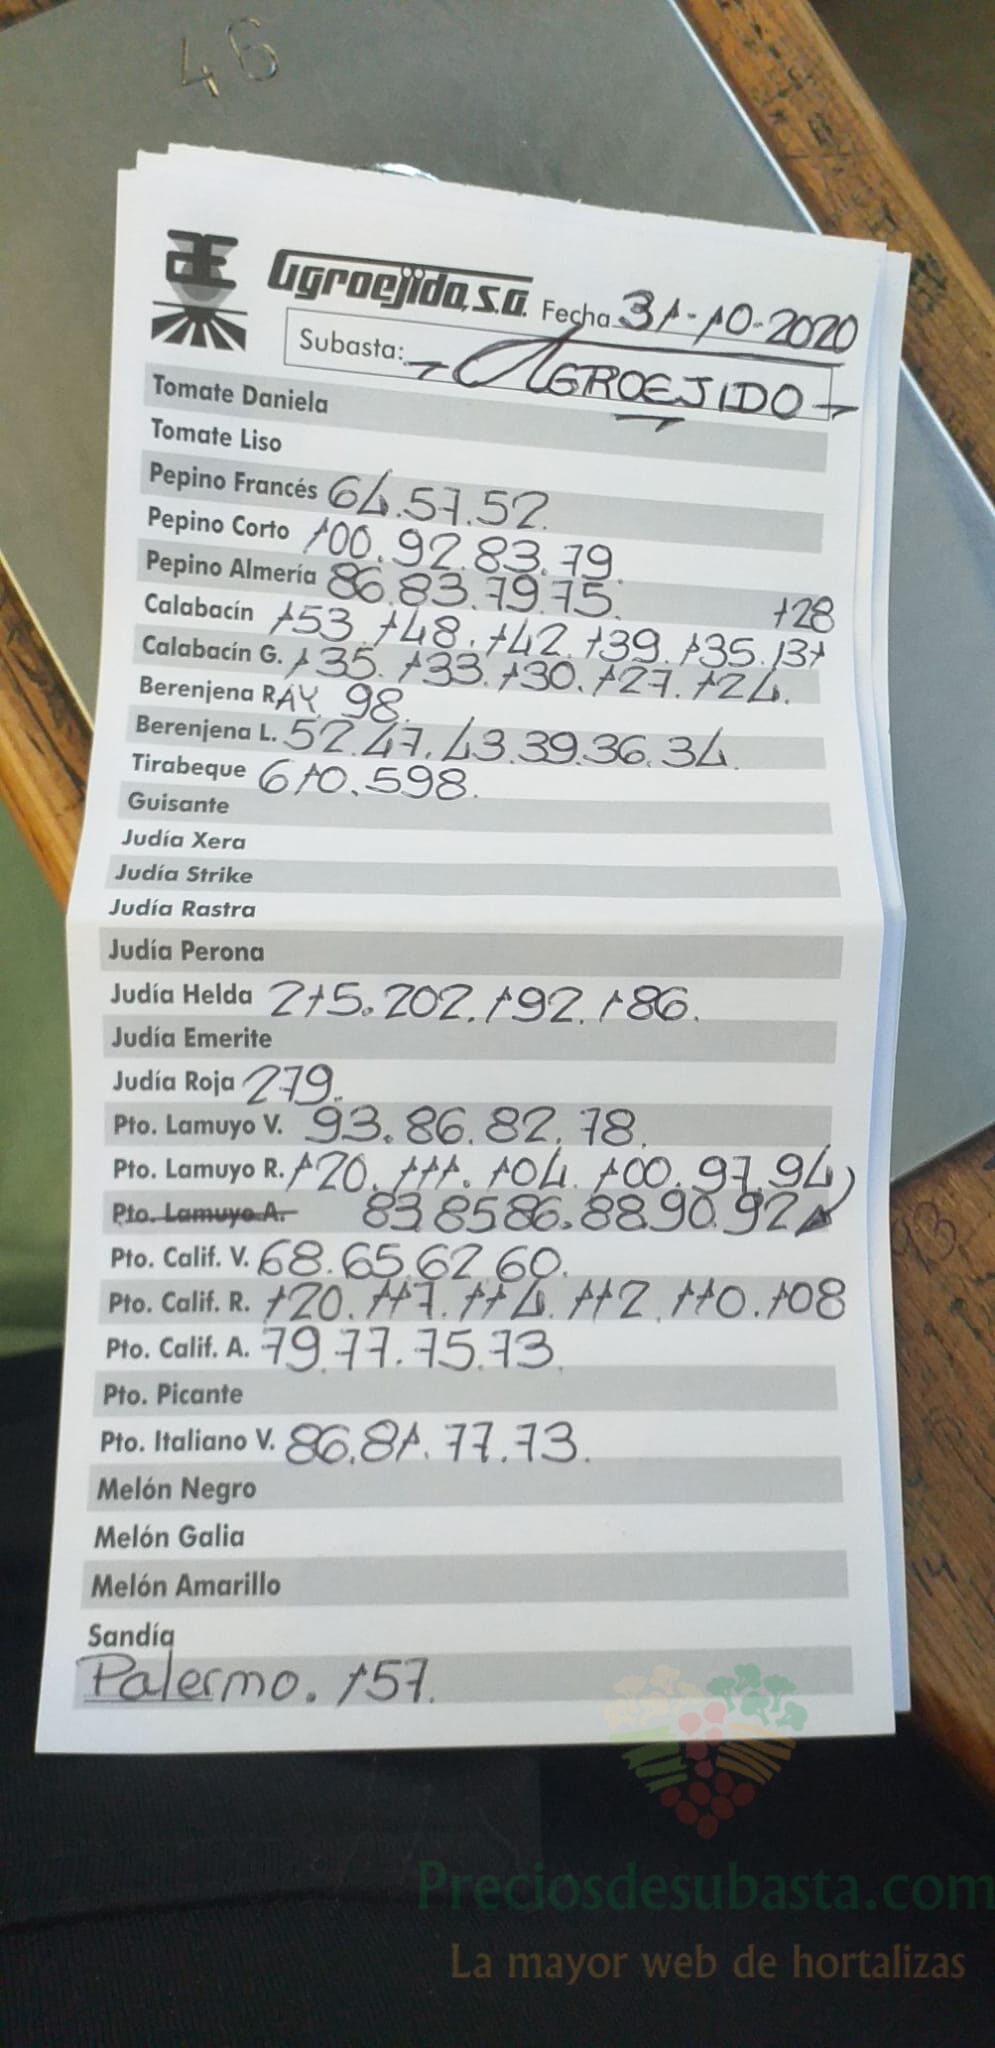 46
AE
Agroejido, S.A. Fecha 31-10-2020
Subasta: AGROEJIDO
Tomate Daniela
Tomate Liso
Pepino Francés 64.57.52.
Pepino Corto 100.92.83.79.
Pepino Almería 86.83.79.75. 128
Calabacín 153.148.142.139.135.131
Calabacín G. 135.133.130.127.124.
Berenjena RAY. 98.
Berenjena L. 52.47.43.39.36.34.
Tirabeque 610.598.
Guisante
Judía Xera
Judía Strike
Judía Rastra
Judía Perona
Judía Helda 215.202.192.186.
Judía Emerite
Judía Roja 279.
Pto. Lamuyo V. 93.86.82.78.
Pto. Lamuyo R. 120.111.104.100.97.94
Pto. Lamuyo A. 83.85.86.88.90.92
Pto. Calif. V. 68.65.62.60.
Pto. Calif. R. 120.117.114.112.110.108
Pto. Calif. A. 79.77.75.73.
Pto. Picante
Pto. Italiano V. 86.81.77.73.
Melón Negro
Melón Galia
Melón Amarillo
Sandía
Palermo. 157.
Preciosdesubasta.com
La mayor web de hortalizas